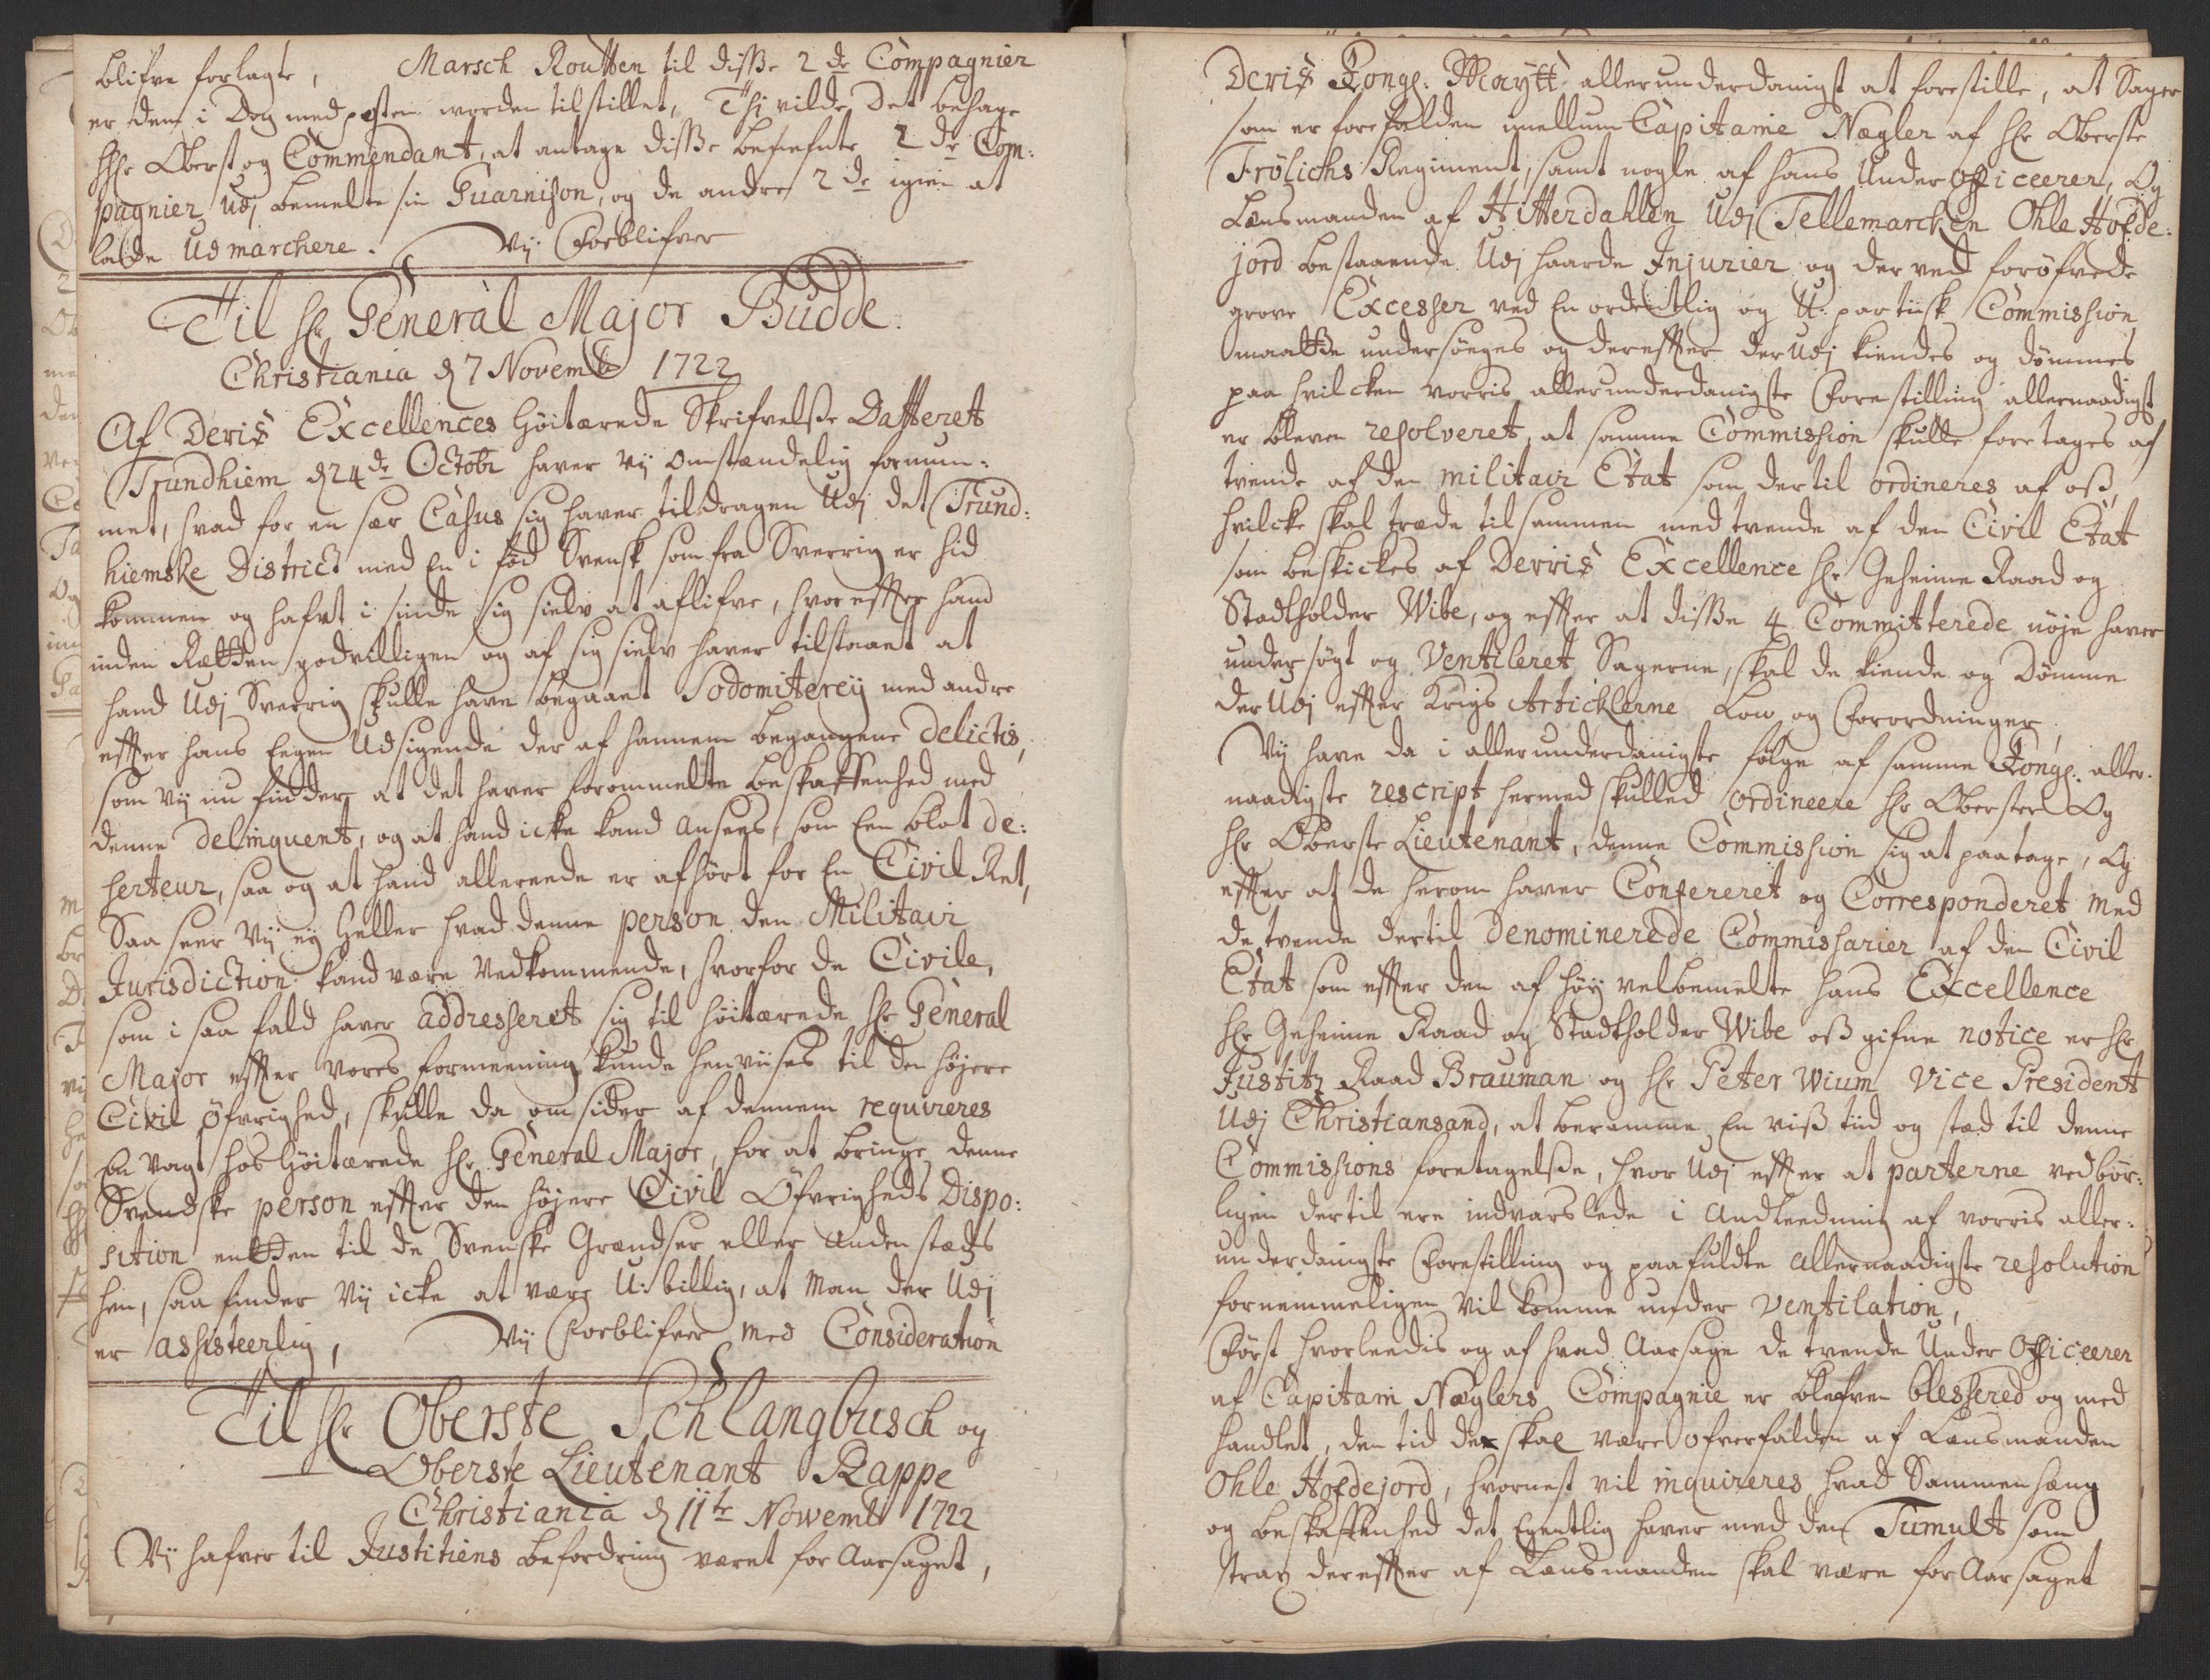 blifve forlagte, Marsch Routten til disse 2de Compagnier
er dem i Dag med posten worden tilstillet, Thi vilde det behage
HHr Oberst og Commendant, at antage disse besiefnte 2de Com:
pagnier Udj bemelte sin Guarnison, og de andre 2de igien at
lade Udmarchere. Vij Forblifver
Til Hr General Major Budde.
Christiania d 7 Novemb 1722
Af Deris Excellences Höitærede Skrifvelsse Datteret
Trundhiem d 24de Octobr haver Vij omstændelig fornum:
met, hvad for en sær Casus sig haver tildragen Udj det Trund:
hiemske District med En i fød Svensk som fra Sverrig er hid
kommen og hafvt i sinde sig sielv at aflifve, hvor effter hand
inden Rætten godvilligen og af sig sielv haver tilstaaet at
hand Udj Sverrig skulle have begaaet Sodomitereij med andre
effter hans Eegen Udsigende der af hannem begangene delictis,
som Vij nu finder at det haver forommelte beskaffenhed med
denne delinquent, og at hand icke kand ansees som Een blot de:
serteur, saa og at hand allereede er afhört for En Civil Ret,
Saa seer Vij eij heller hvad denne person den Militair
Jurisdiction kand være Vedkommende, hvorfor de Civile,
som i saa fald haver addresseret sig til höitærede Hr General
Major effter vores formeening kunde henviises til den höjere
Civil Öfvrighed, skulle da omsider af dennem requireres
En Vagt hos Höitærede Hr General Major, for at bringe denne
Svendske person effter den höjere Civil Öfvrigheds Dispo:
sition entten til de Svenske Grændser eller anden stæds
hen, saa finder Vij icke at være U:billig, at Man der Udj
er assisteerlig, Vij Forblifver med Consideration
Til Hr Oberste Schlangbusch og
Oberste Lieutenant Rappe
Christiania d 11te Nowemb 1722
Vij hafver til Justitiens befordring været for Aarsaget,
Deris Kongl: Maytt allerunderdanigst at forestille, at Sager
som er forefalden imellum Capitaine Nægler af Hr Oberste
Frölichs Regiment, samt nogle af hans Under Officeerer, Og
Lensmanden af Hitterdahlen Udj Tellemarcken Ohle Hofde:
jord bestaaende Udj haarde Injurier og der ved foröfvede
grove Excesser ved En ordentlig og U:partiisk Commission
maatte undersöeges og dereffter der Udj kiendes og dömmes
paa hvilcken vorris allerunderdanigste Forestilling allernaadigst
er bleven resolveret, at samme Commission skulle foretages af
tvende af den militair Etat som dertil ordineres af oss,
hvilcke skal træde tilsammen med tvende af den Civil Etat
som beskickes af Derris Excellence Hr Geheime Raad og
Stadtholder Wibe, og effter at disse 4 Committerede nöje haver
undersøgt og Ventileret Sagerne, skal de kiende og Dömme
der Udj effter Krigs Articklerne Low og Forordninger.
Vij have da i allerunderdanigste følge af samme Kongl: aller:
naadigste rescript hermed skulled ordineere Hr Oberster Og
Hr Oberste Lieutenant, denne Commission sig at paatage, Og
effter at de herom haver Confereret og Corresponderet med
de tvende dertil denominerede Commissarier af den Civil
Etat som effter den af höy velbemelte hans Excellence
Hr Geheime Raad og Stadtholder Wibe oss gifne notice er Hr
Justitz Raad Brauman og Hr Peter Wium Vice President
Udj Christiansand, at beramme En viss tid og stæd til denne
Commissions foretagelsse, hvor Udj effter at parterne vedbör:
ligen dertil ere indvarslede i Andleedning af vorris aller:
underdanigste Forestilling og paafuldte allernaadigste resolution
fornemmeligen Vil komme under Ventilation,
Först hvorleedis og af hvad Aarsage de tvende Under Officeerer
af Capitain Næglers Compagnie er blefven blessered og med
handlet, den tid de skal være ofverfalden af Lensmanden
Ohle Hofdejord, hvornest vil inquireres hvad Sammenhæng
og beskaffenhed det Egentlig haver med den Tumult som
strax dereffter af Lensmanden skal være for Aarsaget